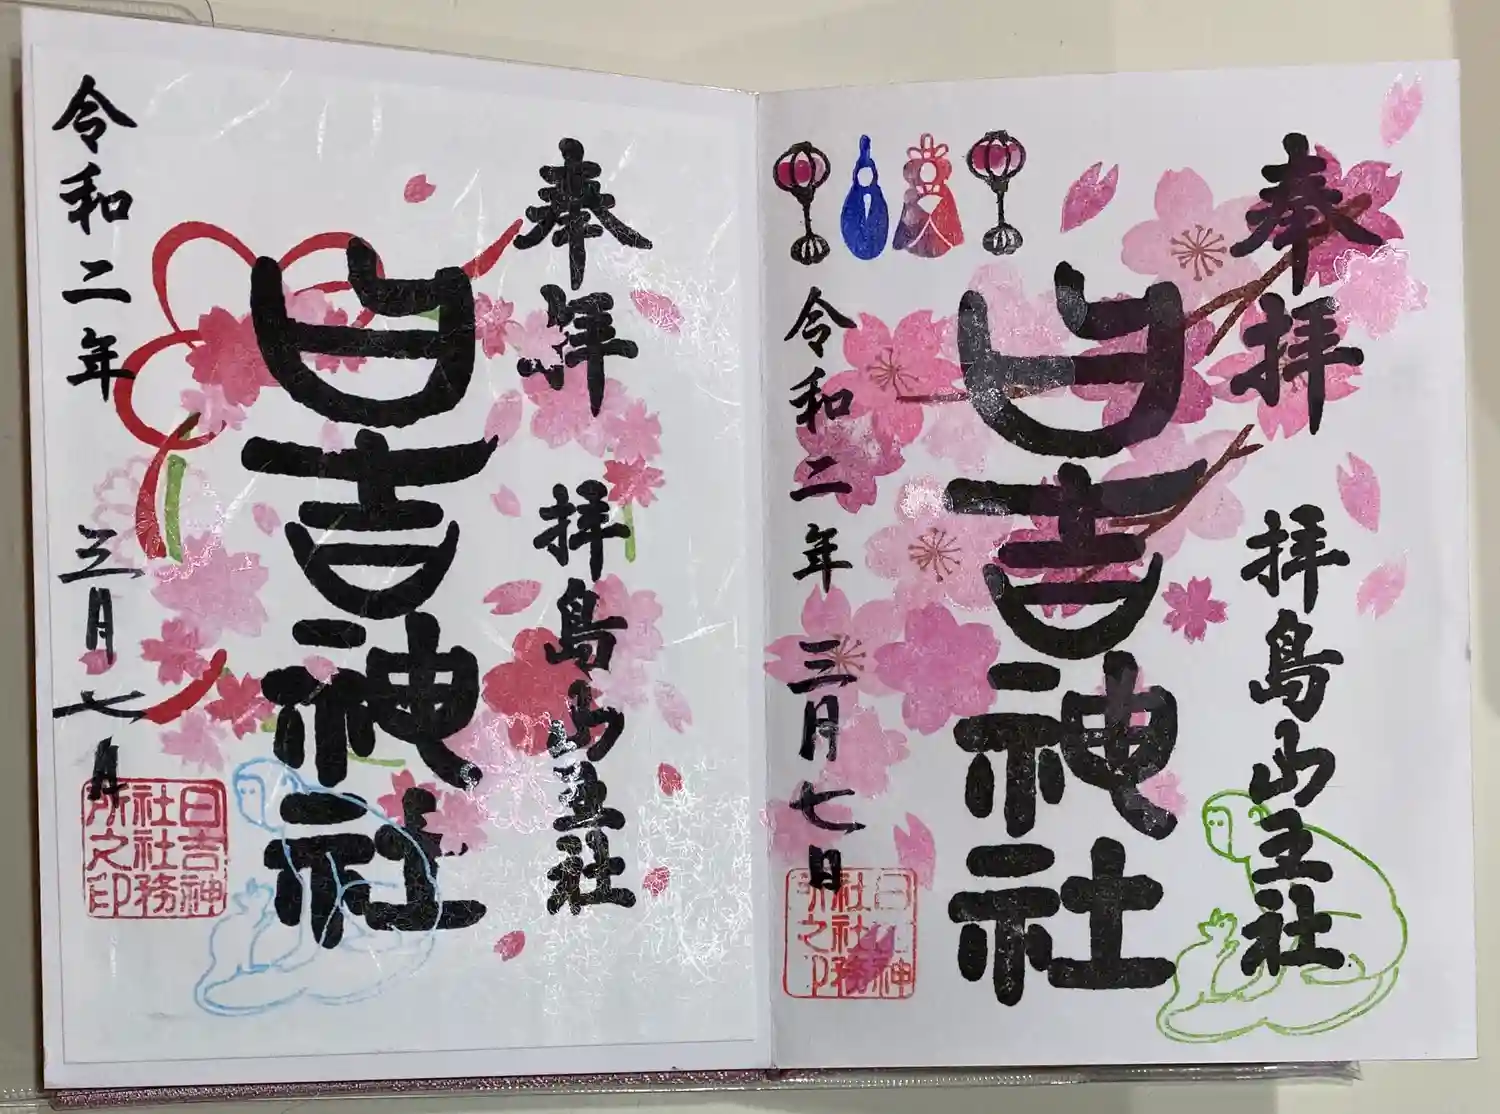 奉拝
拝島山王社
日吉神社
令和二年 三月七日
日吉神
社社務
所之印
奉拝
拝島山王社
日吉神社
令和二年 三月七日
日吉神
社社務
所之印